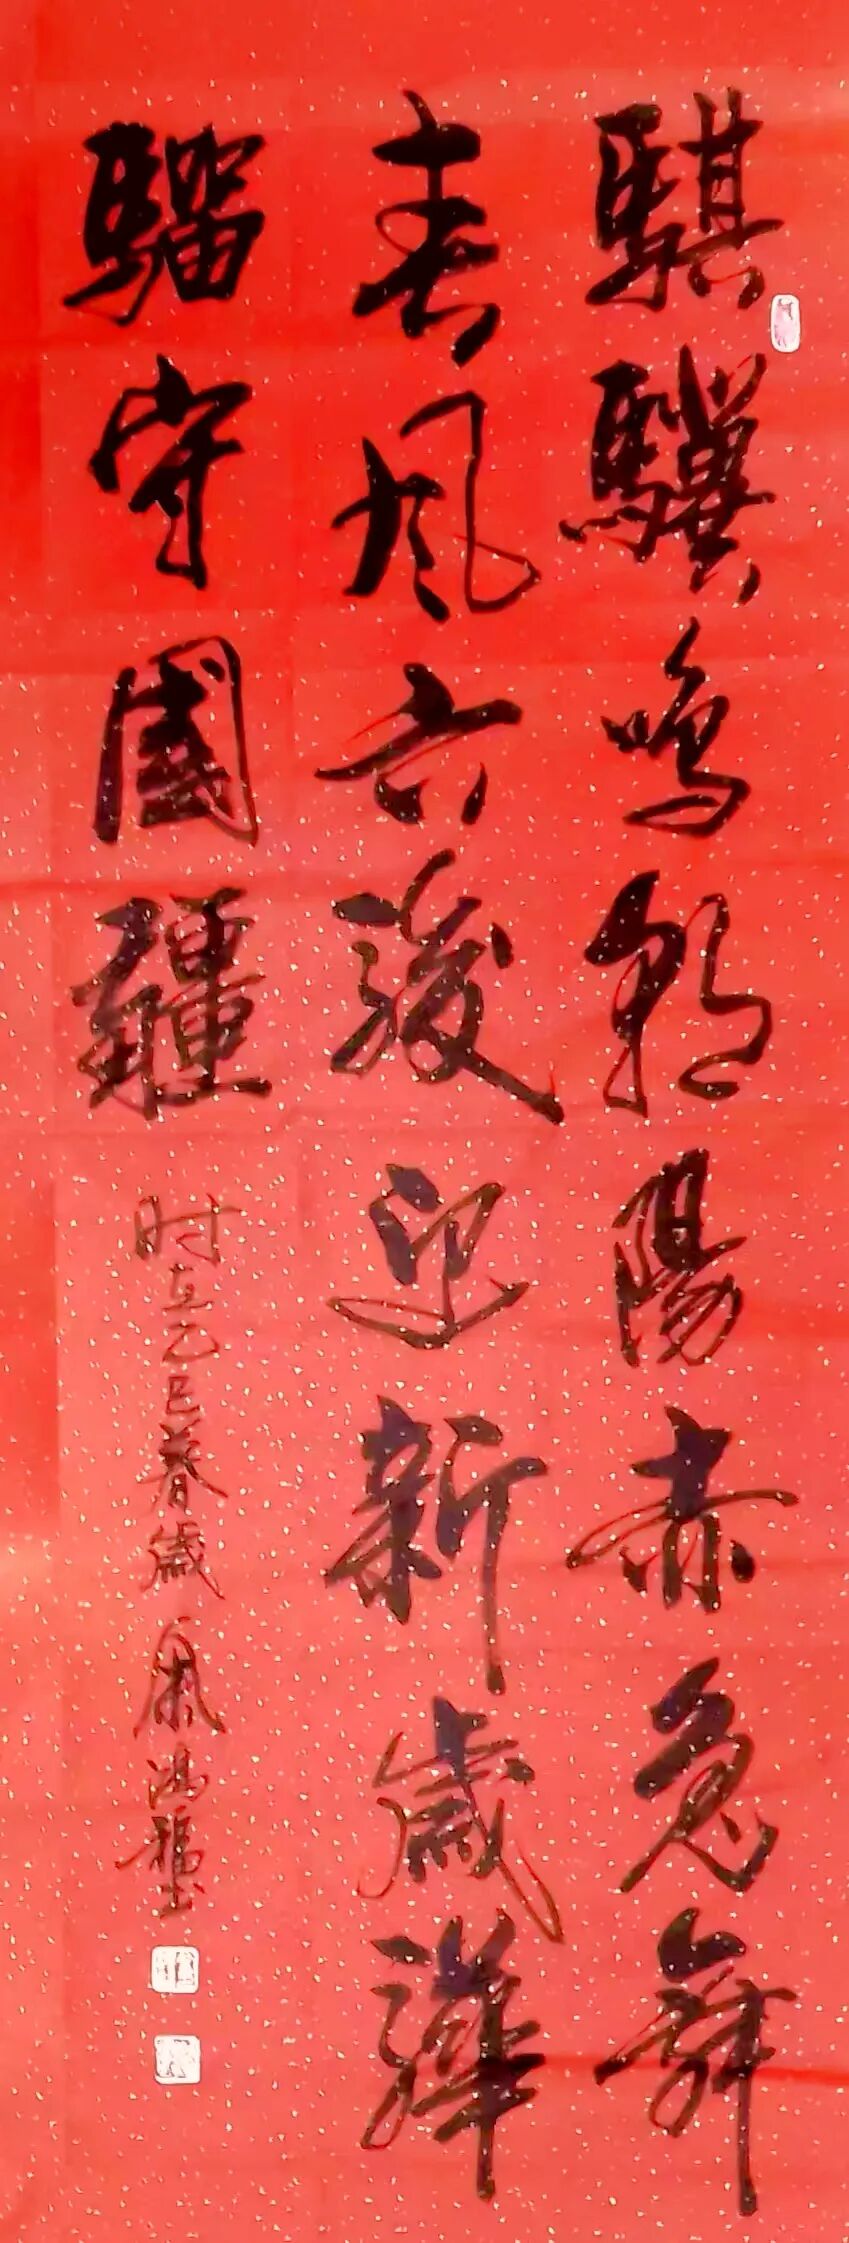 騏驥鳴朝陽赤兔舞
春風六駿迎新歲驊
騮守國疆
时在乙巳暮歲